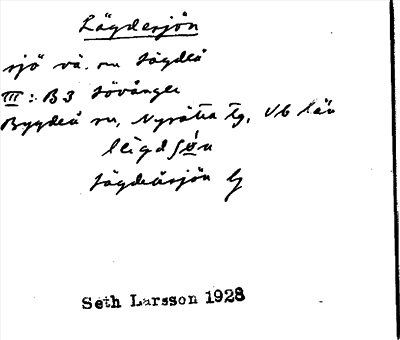 Lägdesjön
sjö vä. om Lägdeå
III: B3 Lövånger
Bygdeå sn, Nysätra tg, Vb län
Lägdeåsjön G
Seth Larsson 1928